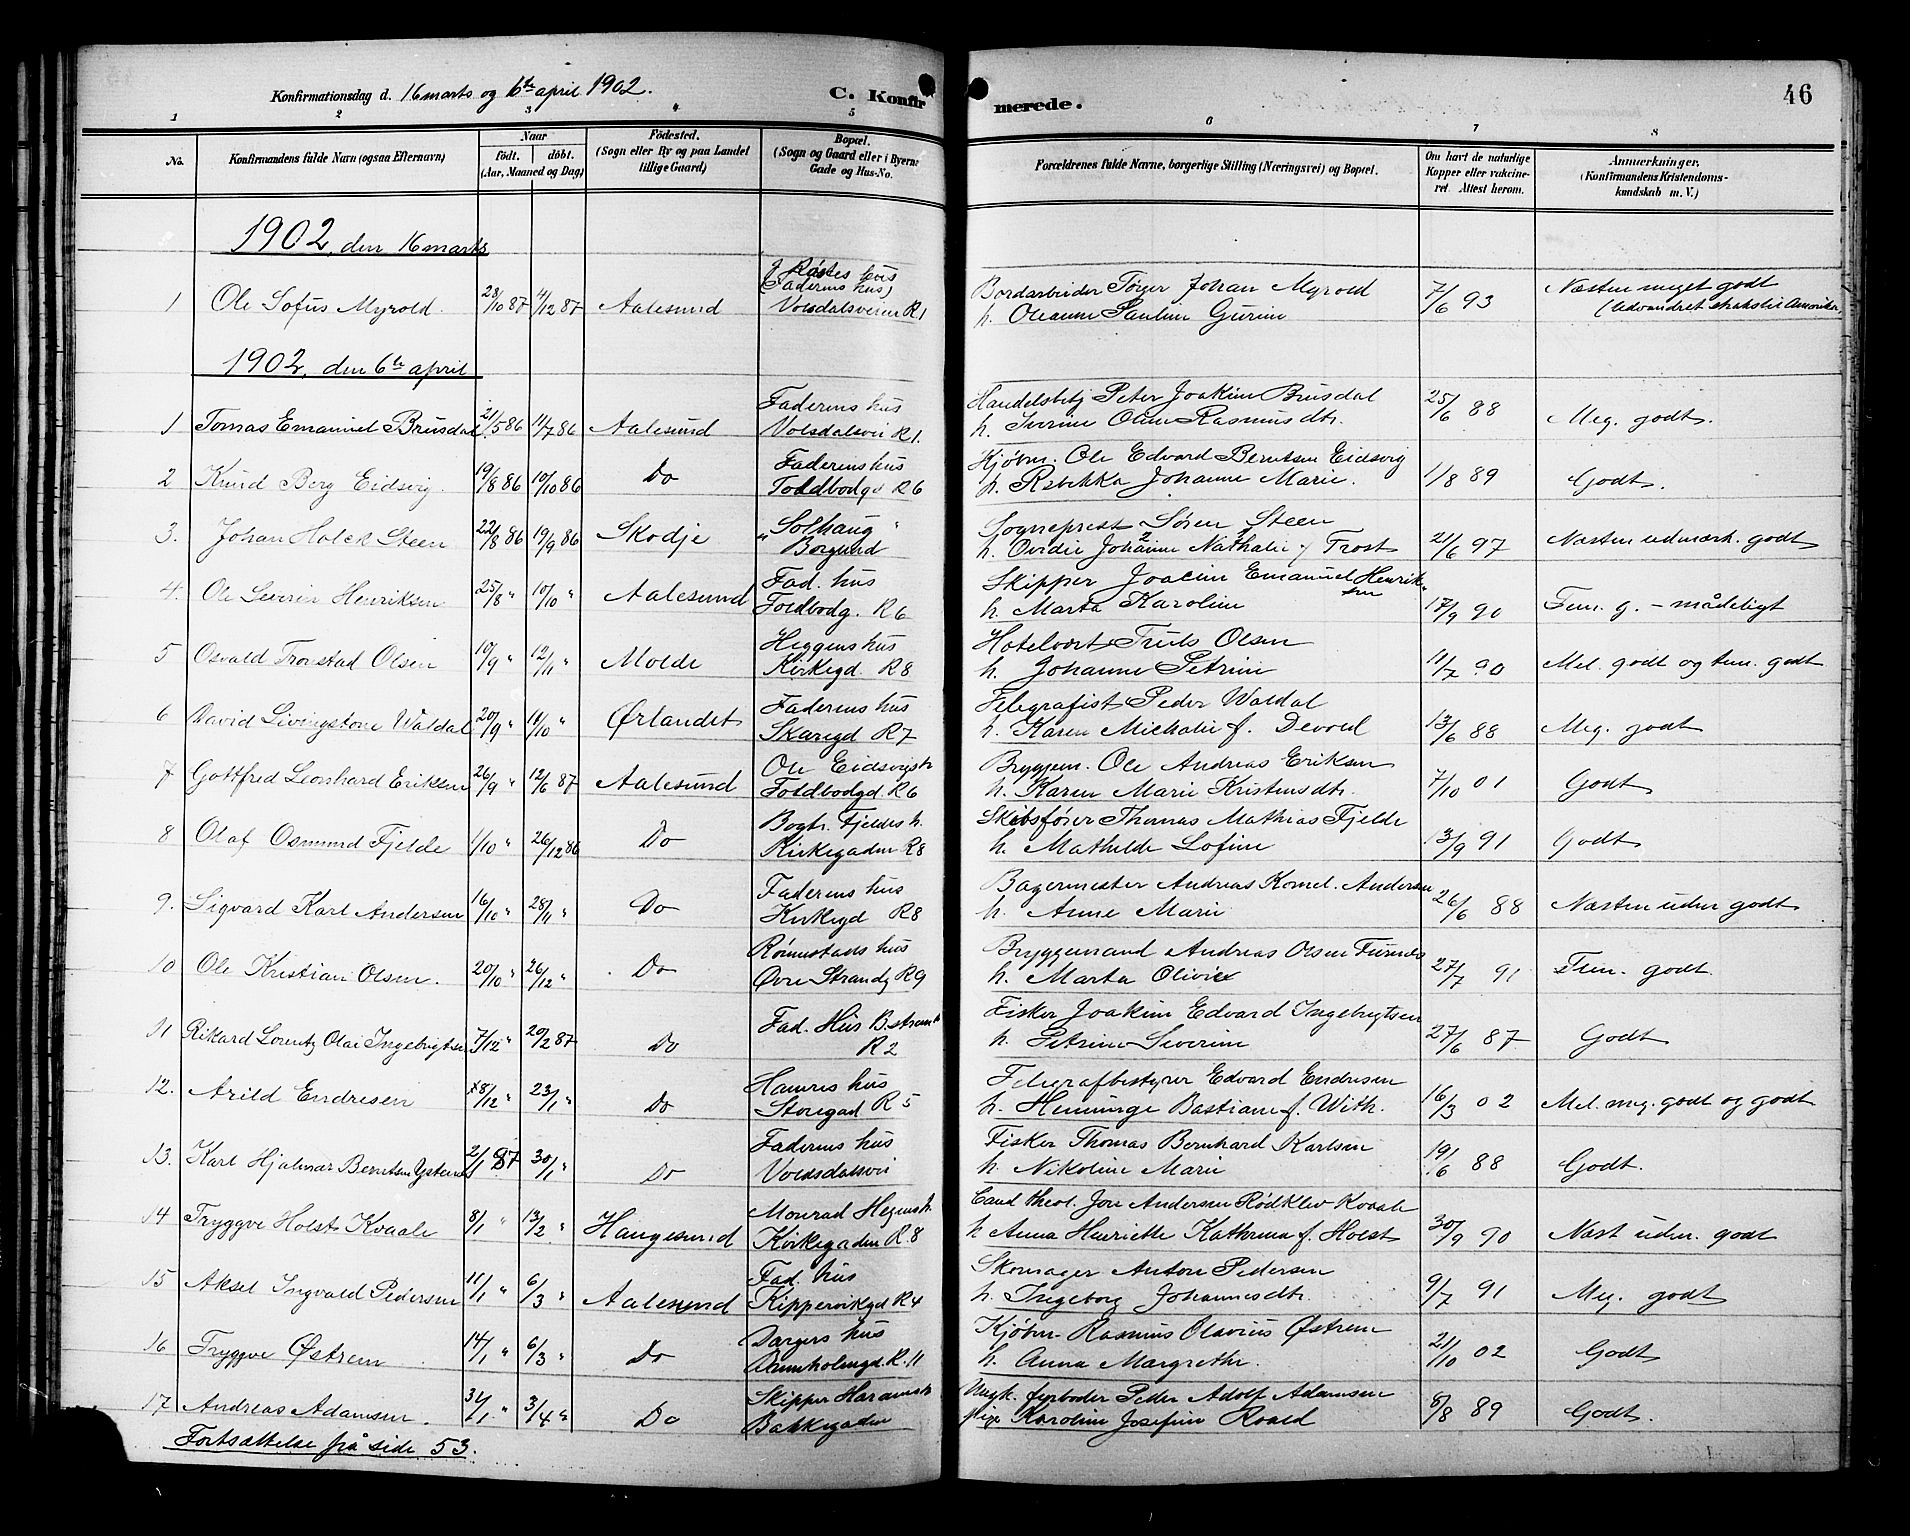 Konfirmationsdag d. 16 marts og 6te april 1902.
C. Konfirmerede.
46
1 2 3 4 5 6 7 8
No.
Konfirmandens fulde Navn (ogsaa Efternavn)
Naar
født. døbt.
(Aar, Maaned og Dag)
Fødested.
(Sogn eller By og paa Landet
tillige Gaard)
Bopæl.
(Sogn og Gaard eller i Byerne
Gade og Hus-No.
Forældrenes fulde Navne, borgerlige Stilling (Næringsvei) og Bopæl.
Om havt de naturlige
Kopper eller vakcine-
ret. Attest herom.
Anmærkninger,
(Konfirmandens Kristendoms-
kundskab m. V.)
1902, den 16 marts
1 Ole Sofus Myrvold. 28/10 87 4/12 87 Aalesund
(Faderens hus)
Volsdalsveien R1
Bordarbeider Johan Myrvold
h. Oleanne Pauline Gurine
7/6 93
Næsten meget godt
(Udvandret straks til Amerika)
1902, den 6te april
1 Tomas Emanuel Brusdal 21/5 86 11/7 86 Aalesund
Faderens hus
Volsdalsvei R1.
Handelsbetj Peter Joakim Brusdal
h. Severine Oline Rasmusdtr.
25/6 88 Meg. godt.
2 Knud Berg Eidsvig. 19/8 86 10/10 86 Do
Faderens hus
Toldbodgd R6
Kjøbm. Ole Edvard Berntsen Eidsvig
h. Rebekka Johanne Marie.
1/8 89 Godt.
3. Johan Holck Steen 22/8 86 19/9 86 Skodje
"Solhaug"
Borgund
Sogneprest Søren Steen
h. Ovidie Johanne Nathalie f Trost
21/6 97 Næsten udmærk. godt
4. Ole Severin Henriksen 25/8 " 10/10 " Aalesund
Fad. hus
Toldbodg. R6
Skipper Joacim Emanuel Henriksen
h. Marta Karoline
17/9 90 Tem. g. – mådeligt
5 Osvald Tronstad Olsen 10/9 " 12/11 " Molde
Heggens hus
Kirkegd. R8
Hotelvært Truls Olsen
h. Johanne Petrine
11/7 90 Mel. godt og tem. godt
6 David Livingstone Waldal 20/9 " 11/10 " Ørlandet
Faderens hus
Skaregd R7
Telegrafist Peder Waldal
h. Karen Michalie f. Devold
13/6 88 Meg. godt
7 Gottfred Leonhard Eriksen 26/9 " 12/6 87 Aalesund
Ole Eidsvigs h
Toldbodgd. R6
Bryggem. Ole Andreas Eriksen
h. Karen Marie Kristensdtr.
7/10 01 Godt
8 Olaf Osmund Fjelde 1/10 " 26/12 86 Do
Bogtr. Fjeldes h.
Kirkegaden R8
Skibsfører Thomas Mathias Fjelde
h. Mathilde Lofine
13/9 91 Godt
9. Sigvard Karl Andersen 16/10 " 28/11 " Do
Faderens hus
Kirkegd R8
Bagermester Andreas Kornel. Andersen
h. Anne Marie
26/6 88 Næsten udm godt
10 Ole Kristian Olsen. 20/10 " 26/12 " Do
Rønnestads hus
Øvre Strandg R9
Bryggemand Andreas Olsen Furnes
h. Marta Olivie
27/7 91 Tem. godt.
11 Rikard Lorentz Olai Ingebrigtsen 7/12 " 20/2 87 Do
Fad. Hus
R2
Fisker Joakim Edvard Ingebrigtsen
h. Petrine Severine
27/6 87 Godt
12. Arild Endresen 18/12 " 23/1 " Do
Hamres hus
Storegad R5
Telegrafbestyrer Edvard Endresen
h. Henninge Bastiane f. With.
16/3 02 Mel. meg. godt og godt
13. Karl Hjalmar Berntsen 2/1 87 30/1 " Do
Faderens hus
Volsdalsvei
Fisker Thomas Bernhard Karlsen
h. Nikoline Marie
19/6 88 Godt.
14 Tryggve Holst Kvaale 8/1 " 13/2 " Haugesund
Monrad Hegens h.
Kirkegaden R.8
Cand theol. Jon Andersen Rødklev Kvaale
h Anna Henriette Kathrina f. Holst
30/9 90 Næst udm. godt
15 Aksel Ingvald Pedersen 11/1 " 6/3 " Aalesund
Fad. hus
Kippervikgd R4
Skomager Anton Pedersen
h. Ingeborg Johannesdtr.
9/7 91 Meg. godt
16 Tryggve Østrem 14/1 " 6/3 " Do
hus
R. 11
Kjøbm. Rasmus Olavius Østrem
h. Anna Margrethe.
21/10 02 Godt
17 Andreas Adamsen. 31/1 " 3/4 " Do
Skipper Harams h
Bakkegaden
Ungk. fyrbøder Peder Adolf Adamsen
pige Karoline Josefine Roald
8/8 89 Godt.
Fortsættelse på side 53.